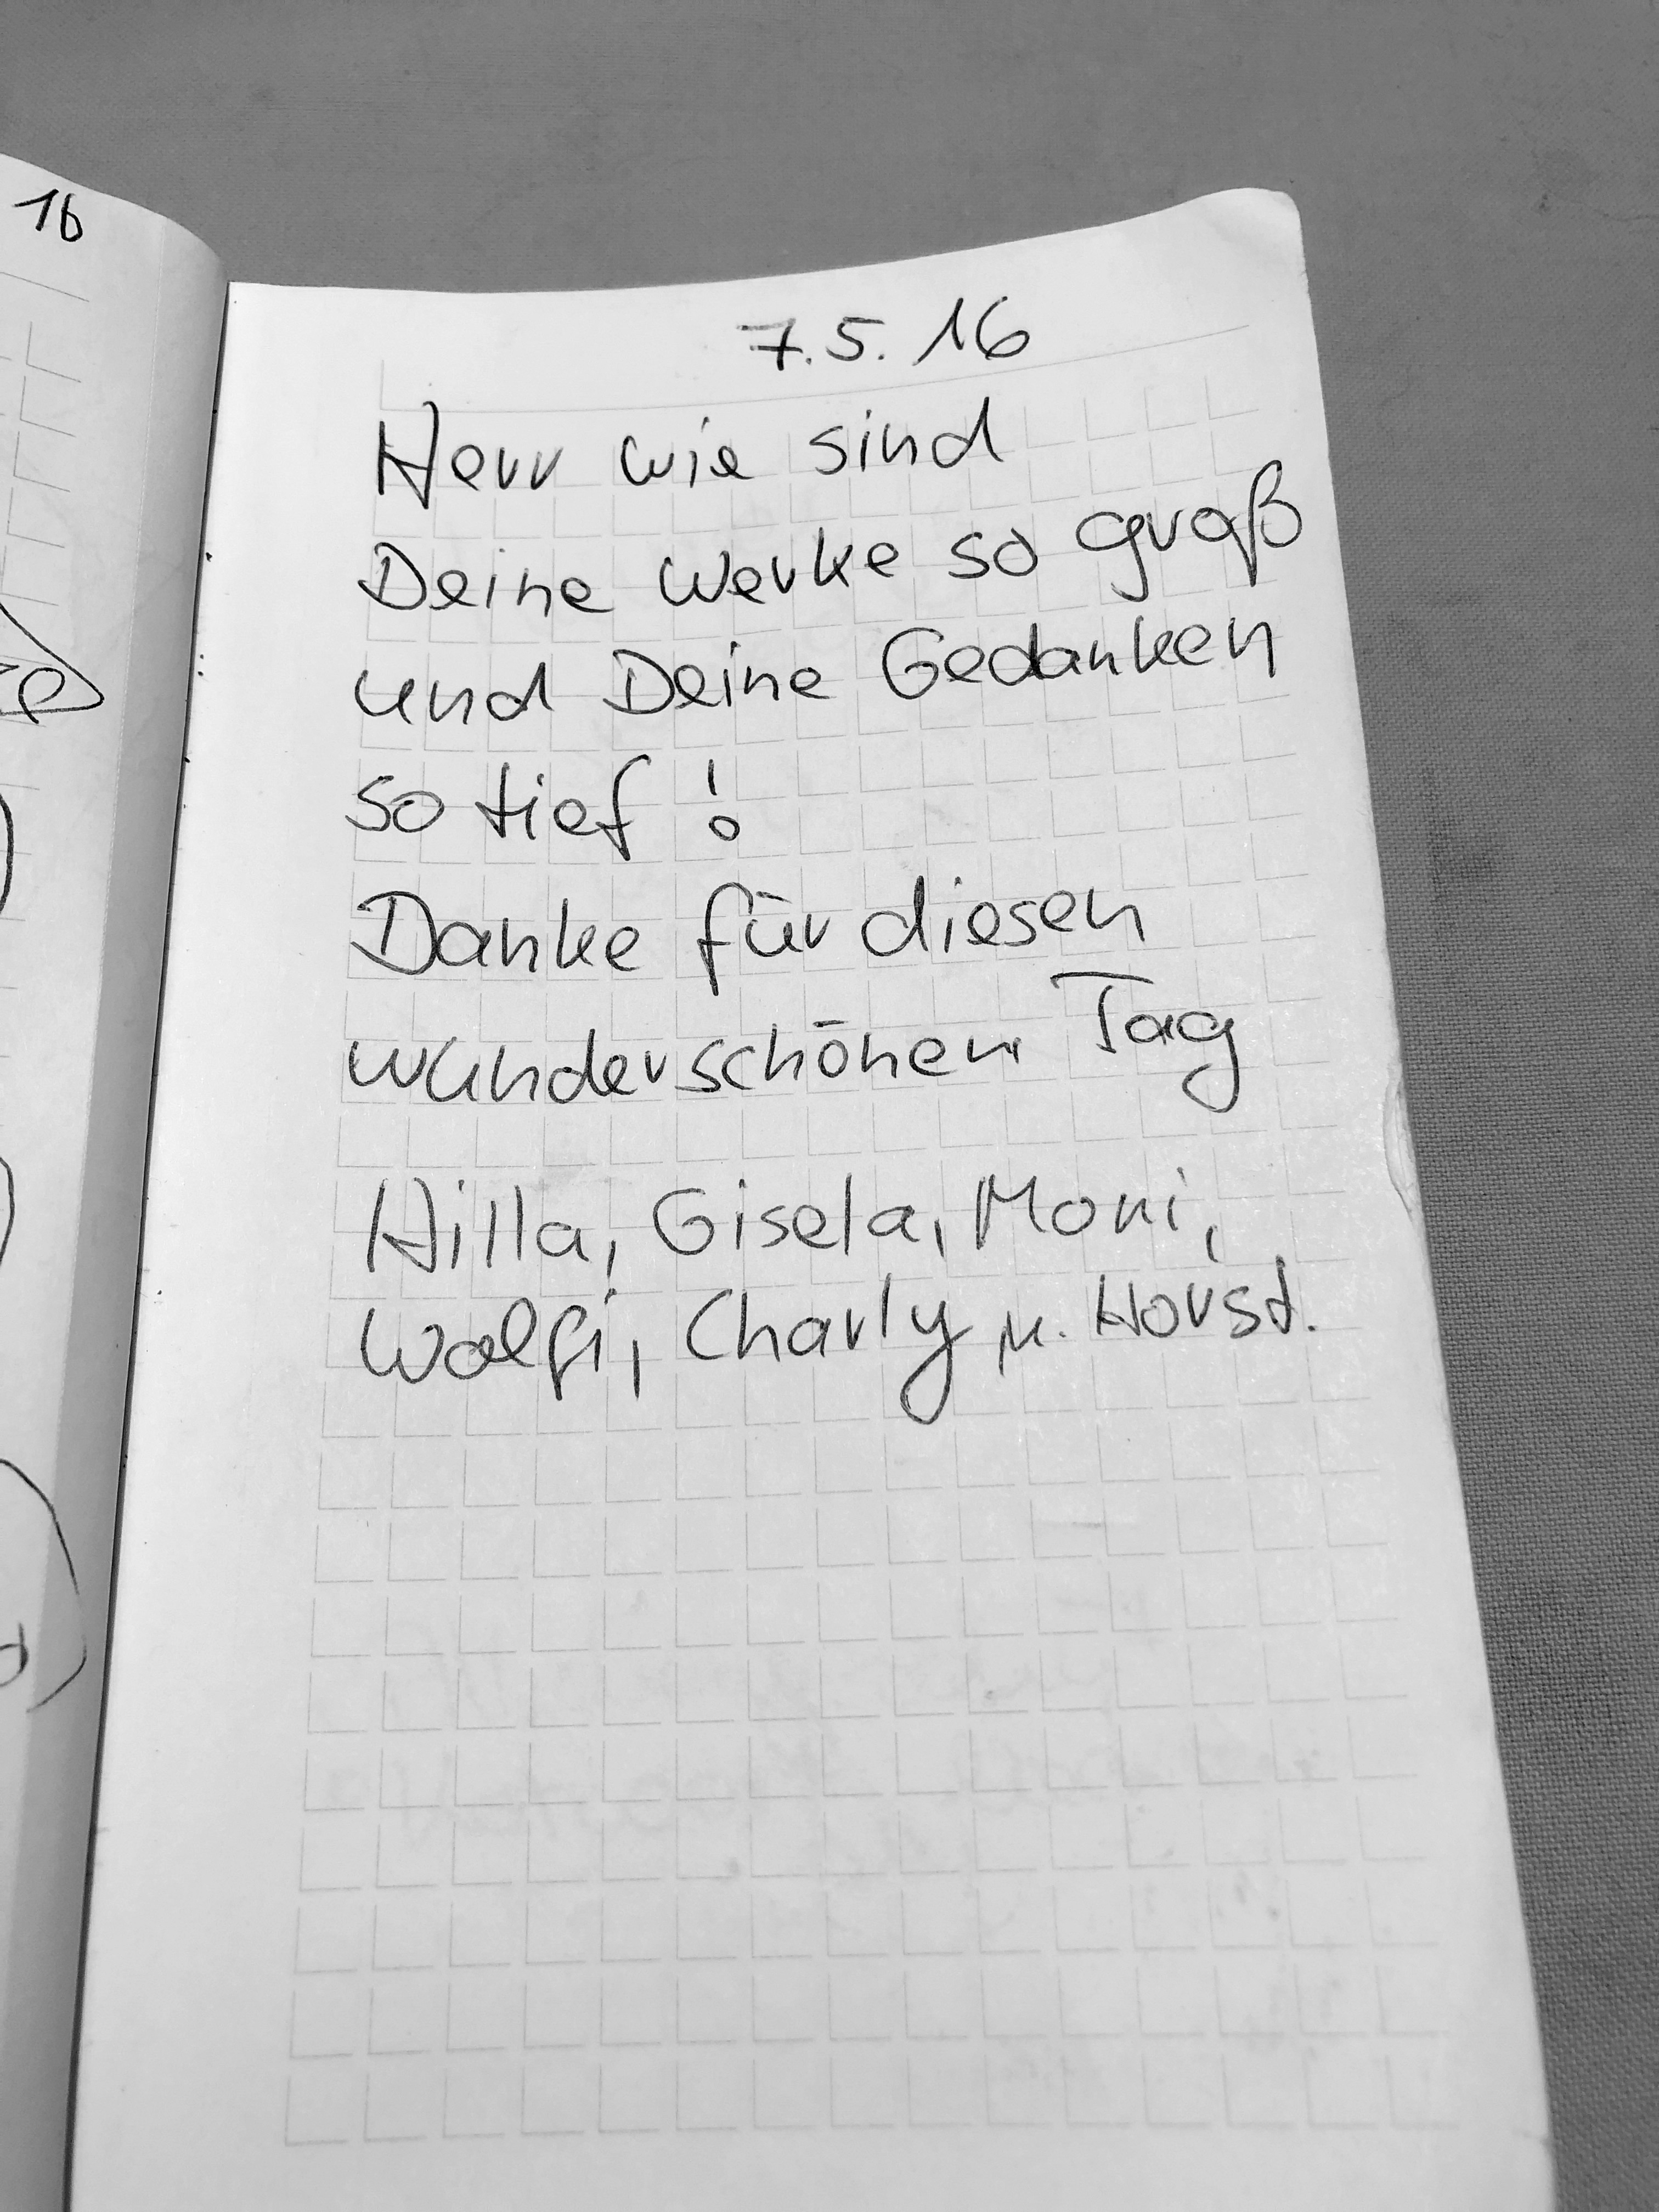 16
7.5.16
Herr wie sind
Deine Werke so groß
und Deine Gedanken
so tief!
Danke für diesen
wunderschönen Tag
Hilla, Gisela, Moni,
Wolfi, Charly u. Horst.